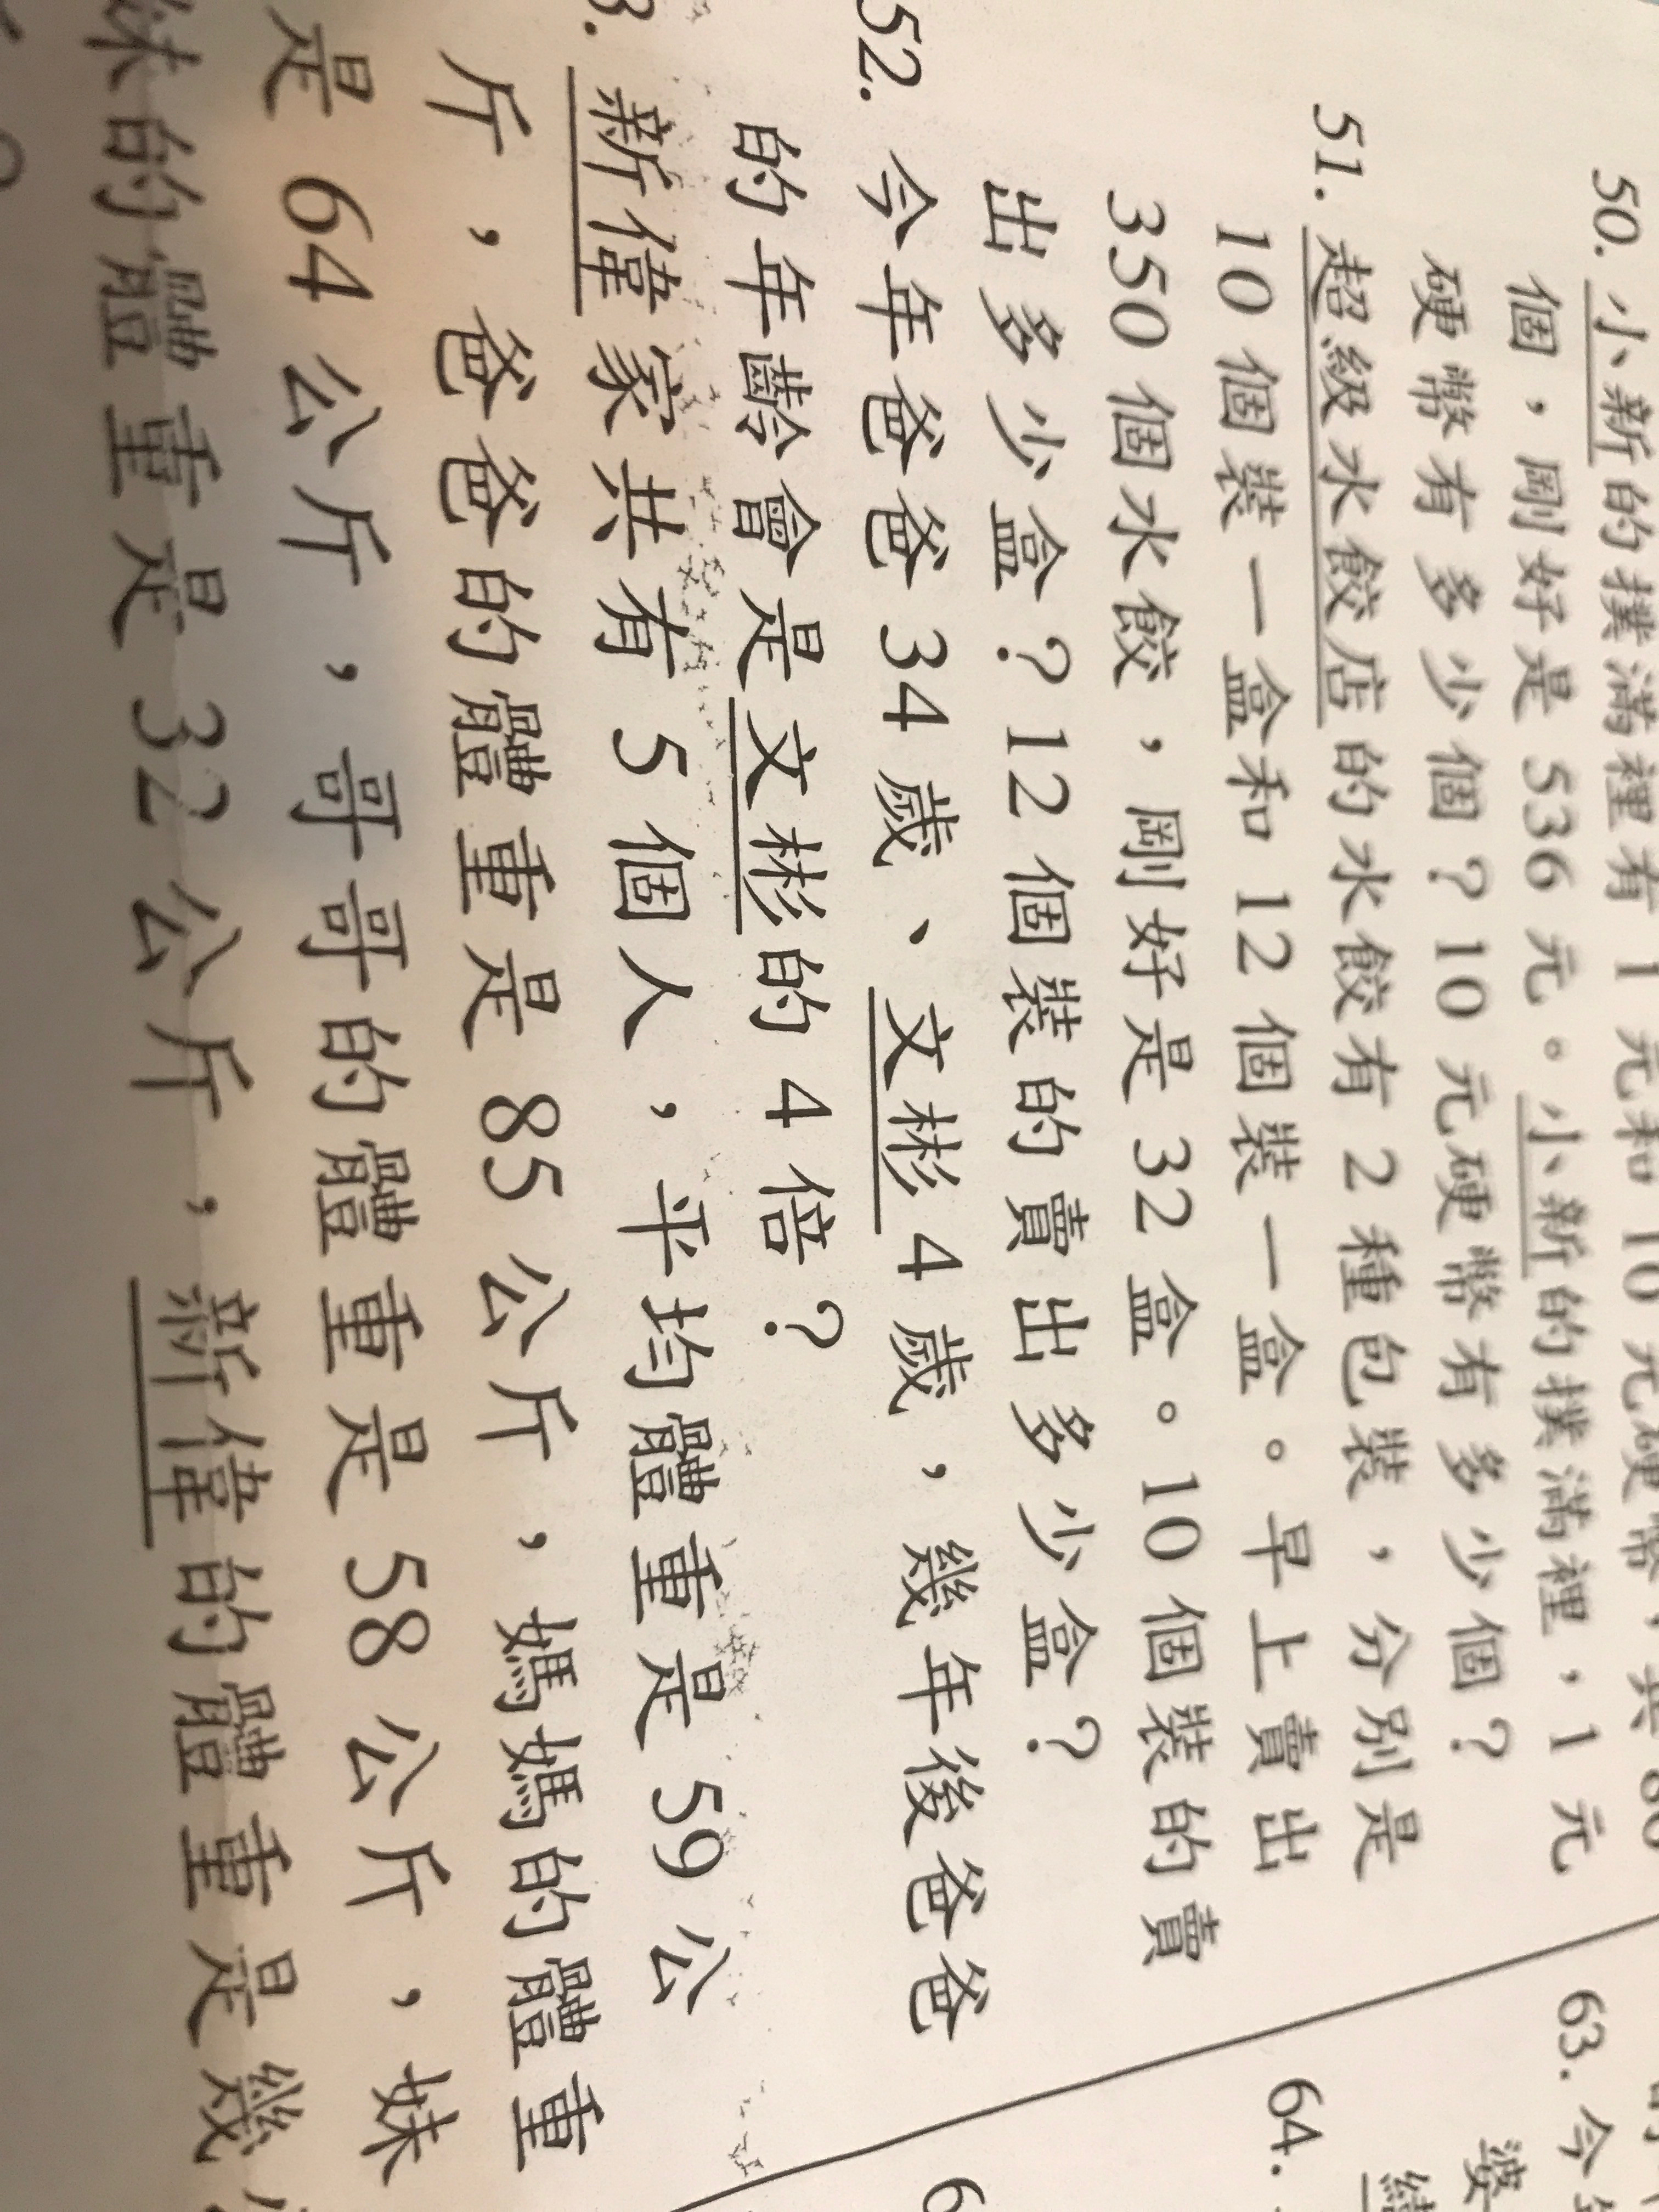 50. 小新的撲滿裡有 1 元和 10 元硬幣,共 80
個,剛好是 536 元。小新的撲滿裡,1 元
硬幣有多少個?10 元硬幣有多少個?
51. 超級水餃店的水餃有 2 種包裝,分別是
10 個裝一盒和 12 個裝一盒。早上賣出
350 個水餃,剛好是 32 盒。10 個裝的賣
出多少盒?12 個裝的賣出多少盒?
52. 今年爸爸 34 歲、文彬 4 歲,幾年後爸爸
的年齡會是文彬的 4 倍?
3. 新偉家共有 5 個人,平均體重是 59 公
斤,爸爸的體重是 85 公斤,媽媽的體重
是 64 公斤,哥哥的體重是 58 公斤,妹
妹的體重是 32 公斤,新偉的體重是幾公
63. 今
婆
64.
6